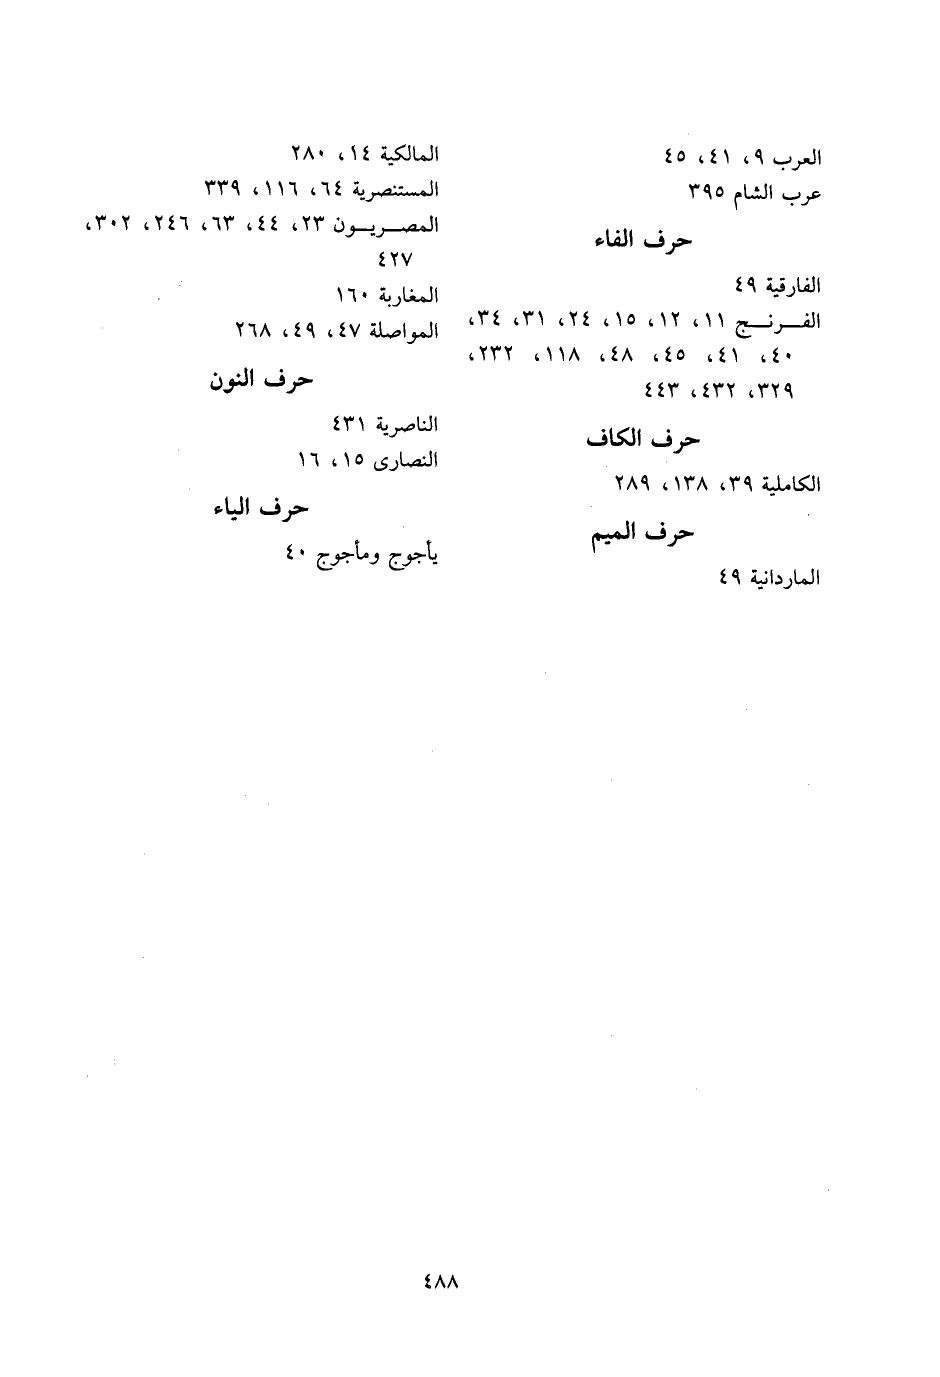 العرب ٩، ٤١، ٤٥
عرب الشام ٣٩٥
حرف الفاء
الفارقية ٤٩
الفـــرنـــج ١١، ١٢، ١٥، ٢٤، ٣١، ٣٤،
٤٠، ٤١، ٤٥، ٤٨، ١١٨، ٢٣٢،
٣٢٩، ٤٣٢، ٤٤٣
حرف الكاف
الكاملية ٣٩، ١٣٨، ٢٨٩
حرف الميم
الماردانية ٤٩
المالكية ١٤، ٢٨٠
المستنصرية ٦٤، ١١٦، ٣٣٩
المصـــريـــون ٢٣، ٤٤، ٦٣، ٢٤٦، ٣٠٢،
٤٢٧
المغاربة ١٦٠
المواصلة ٤٧، ٤٩، ٢٦٨
حرف النون
الناصرية ٤٣١
النصارى ١٥، ١٦
حرف الياء
يأجوج ومأجوج ٤٠
٤٨٨